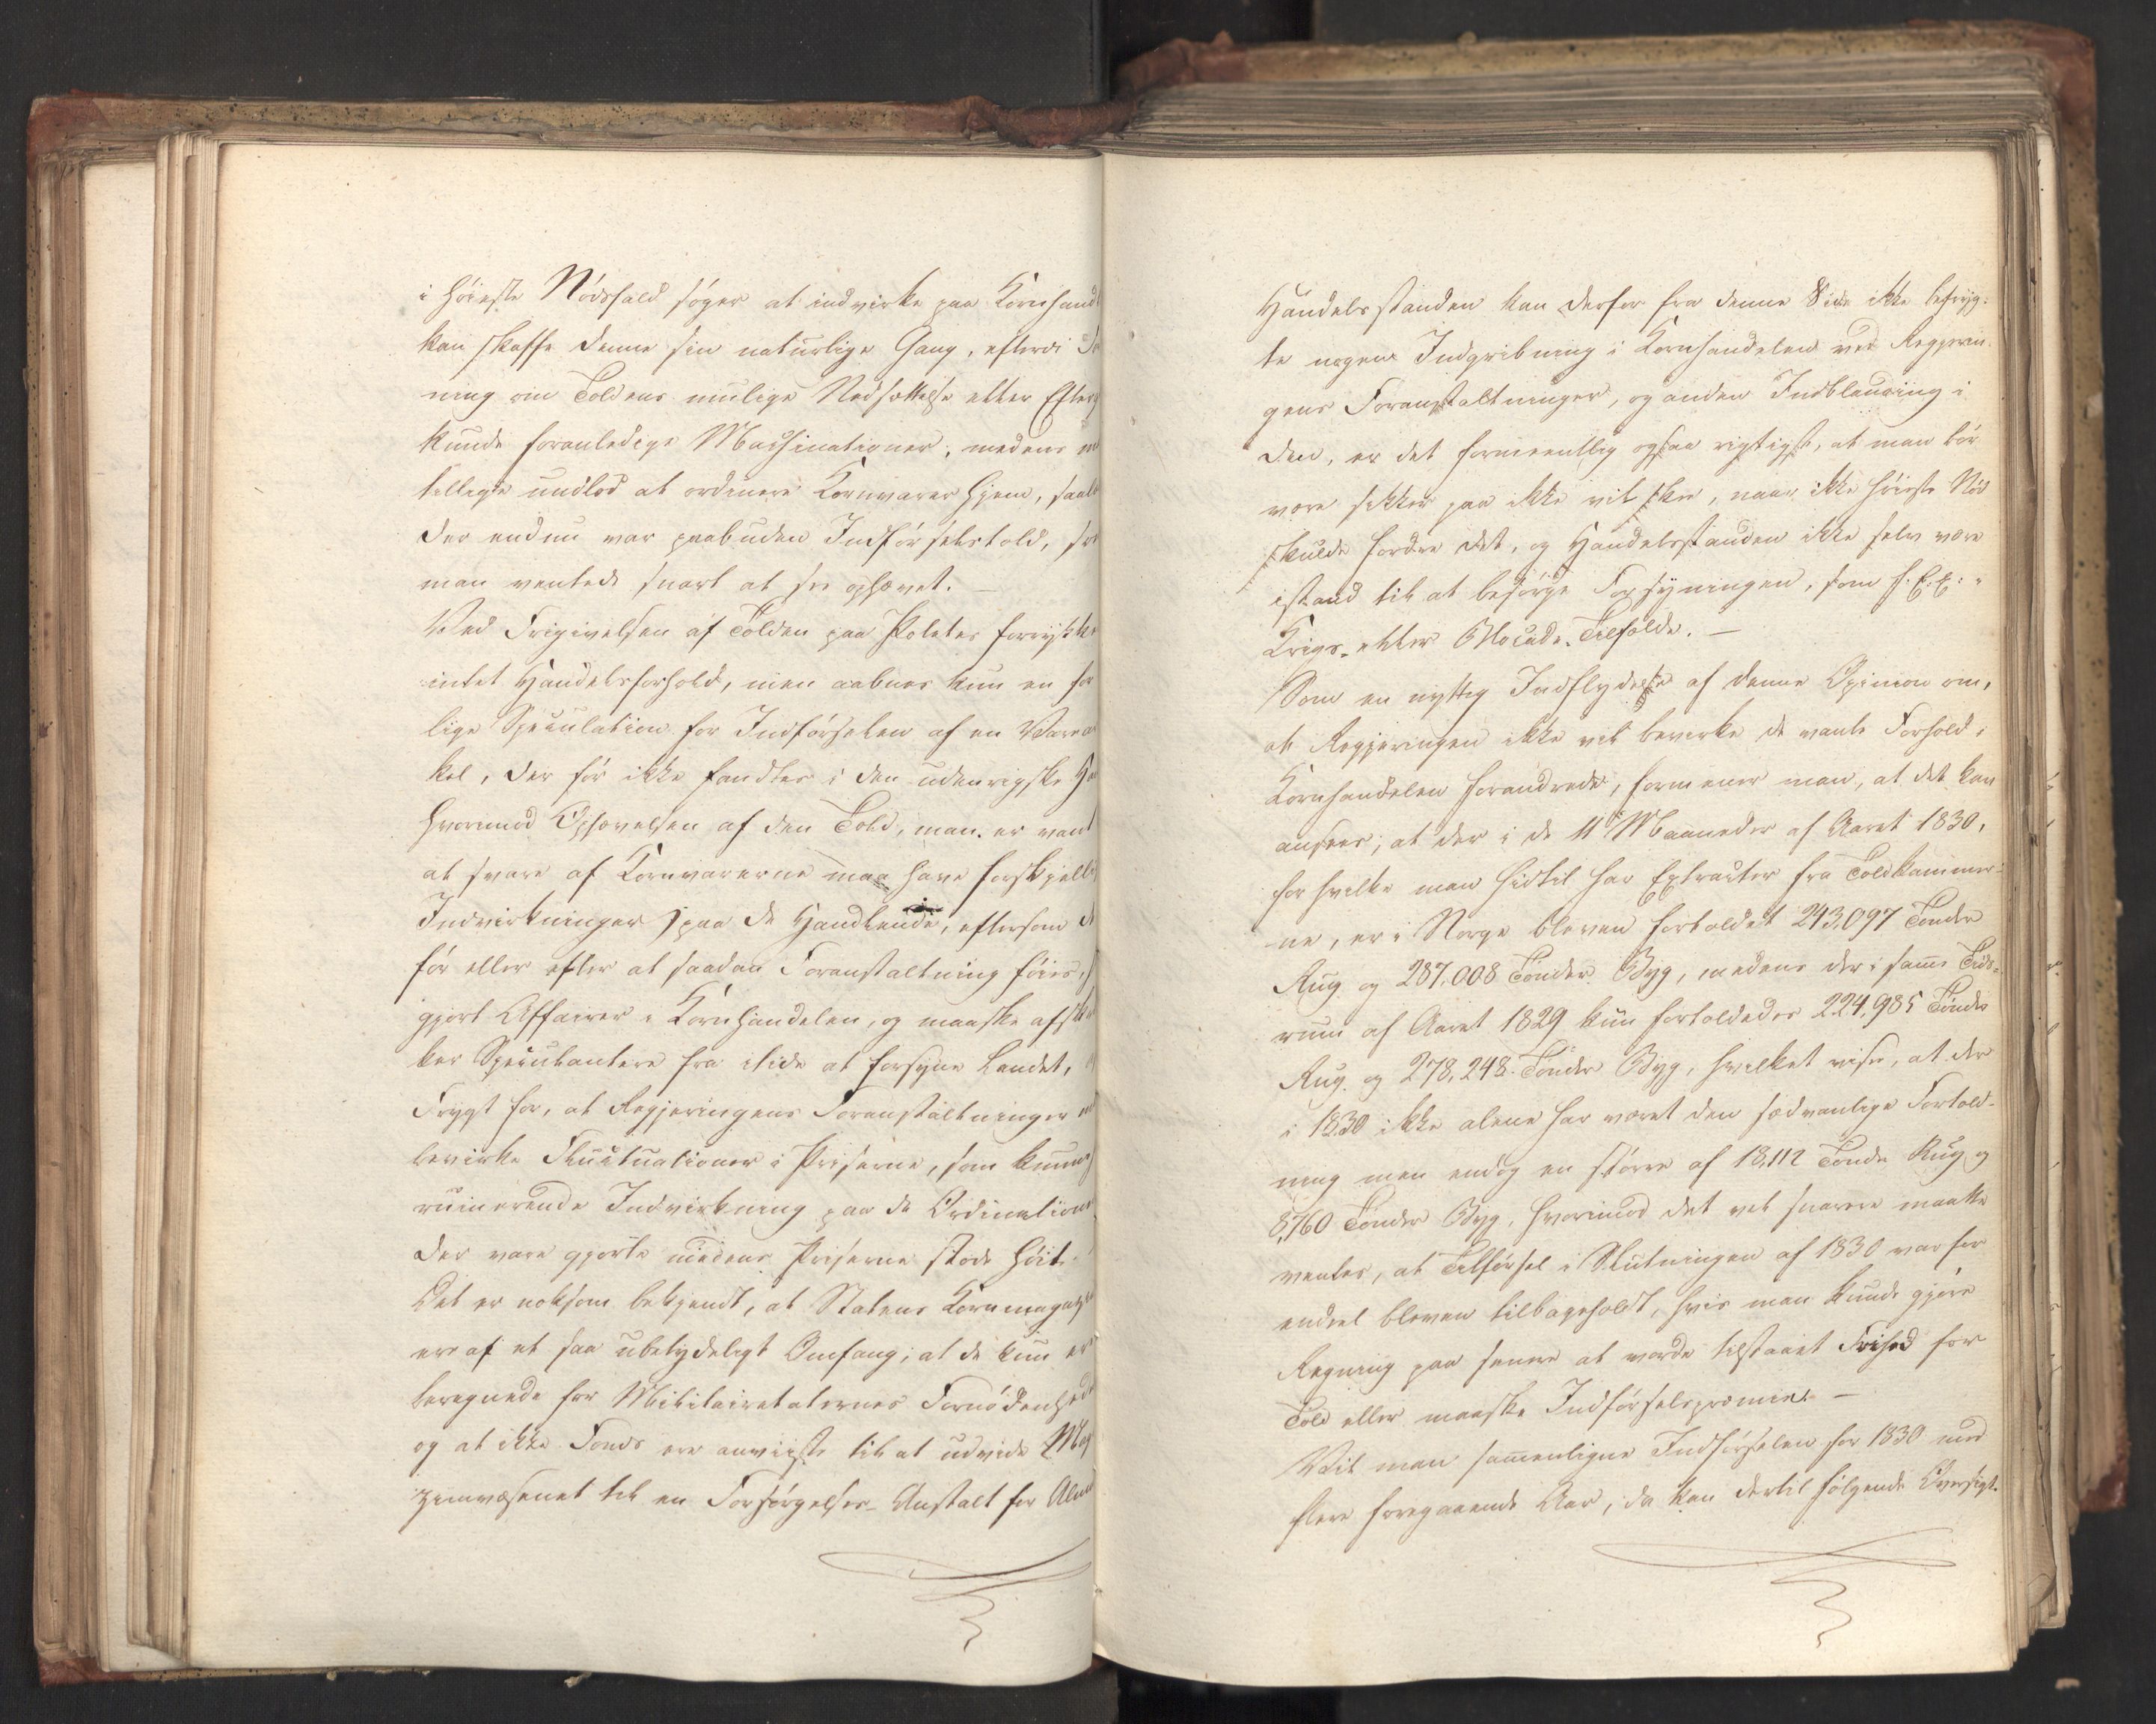 i høieste Nødsfald søger at indvirke paa Kornhand
kan skaffe denne sin naturlige Gang, efterdi
ning om Toldens mulige Nedsættelse eller Efterg
kunde foranledige Machinationer, medens
tillige undlod at ordinere Kornvarer hjem, saal
der endnu var paabuden Indførselstold, so
man ventede snart at see ophævet. —
Ved Frigivelsen af Tolden paa Poteter forrykke
intet Handelsforhold, men aabnes kun en for
lige Speculation for Indførselen af en Varear
kel, der før ikke fandtes i den udenrigske Ha
hvorimod Ophævelsen af den Told, man er vant
at svare af Kornvarerne maa have forskjelli
Indvirkninger paa de Handlende, eftersom de
før eller efter at saadan Foranstaltning føies,
gjort Affairer i Kornhandelen, og maaske afsk
ker Speculantere fra itide at forsyne Landet,
Frygt for, at Regjeringens Foranstaltninger
bevirke Fluctuationer i Priserne, som kunne
ruinerende Indvirkning paa de Ordinationer
der vare gjorte medens Priserne stode høit.
Det er noksom bekjendt, at Statens Kornmagaz
ere af et saa ubetydeligt Omfang, at de kun er
beregnede for Militairetaternes Fornødenhed
og at ikke Fonds ere anviiste til at udvide Mag
zinvæsenet til en Forsørgelses-Anstalt for Alm
Handelsstanden kan derfor fra denne Side ikke befryg-
te nogen Indgribning i Kornhandelen ved Regjerin-
gens Foranstaltninger, og anden Indblanding i
den, er det formeentlig ogsaa rigtigst, at man bør
være sikker paa ikke vil skee, naar ikke høieste Nød
skulde fordre det, og Handelsstanden ikke selv være
istand til at besørge Forsyningen, som f. Ex: i
Krigs- eller Blocade-Tilfælde. —
Som en nyttig Indflydelse af denne Opinion om,
at Regjeringen ikke vil bevirke de vante Forhold i
Kornhandelen forandrede, formener man, at det kan
ansees, at der i de 11 Maaneder af Aaret 1830,
for hvilke man hidtil har Extracter fra Toldkammer-
ne, er i Norge bleven fortoldet 243,097 Tønder
Rug og 287,008 Tønder Byg, medens der i samme Tids-
rum af Aaret 1829 kun fortoldedes 224,985 Tønder
Rug og 278,248 Tønder Byg, hvilket viser, at der
i 1830 ikke alene har været den sædvanlige Fortold-
ning men endog en større af 18,112 Tønder Rug og
8,760 Tønder Byg, hvorimod det vel snarere maatte
ventes, at Tilførsel i Slutningen af 1830 var for
endeel bleven tilbageholdt, hvis man kunde gjøre
Regning paa senere at vorde tilstaaet Frihed for
Told eller maaske Indførselspræmie. —
Vil man sammenligne Indførselen for 1830 med
flere foregaaende Aar, da kan dertil følgende Oversigt